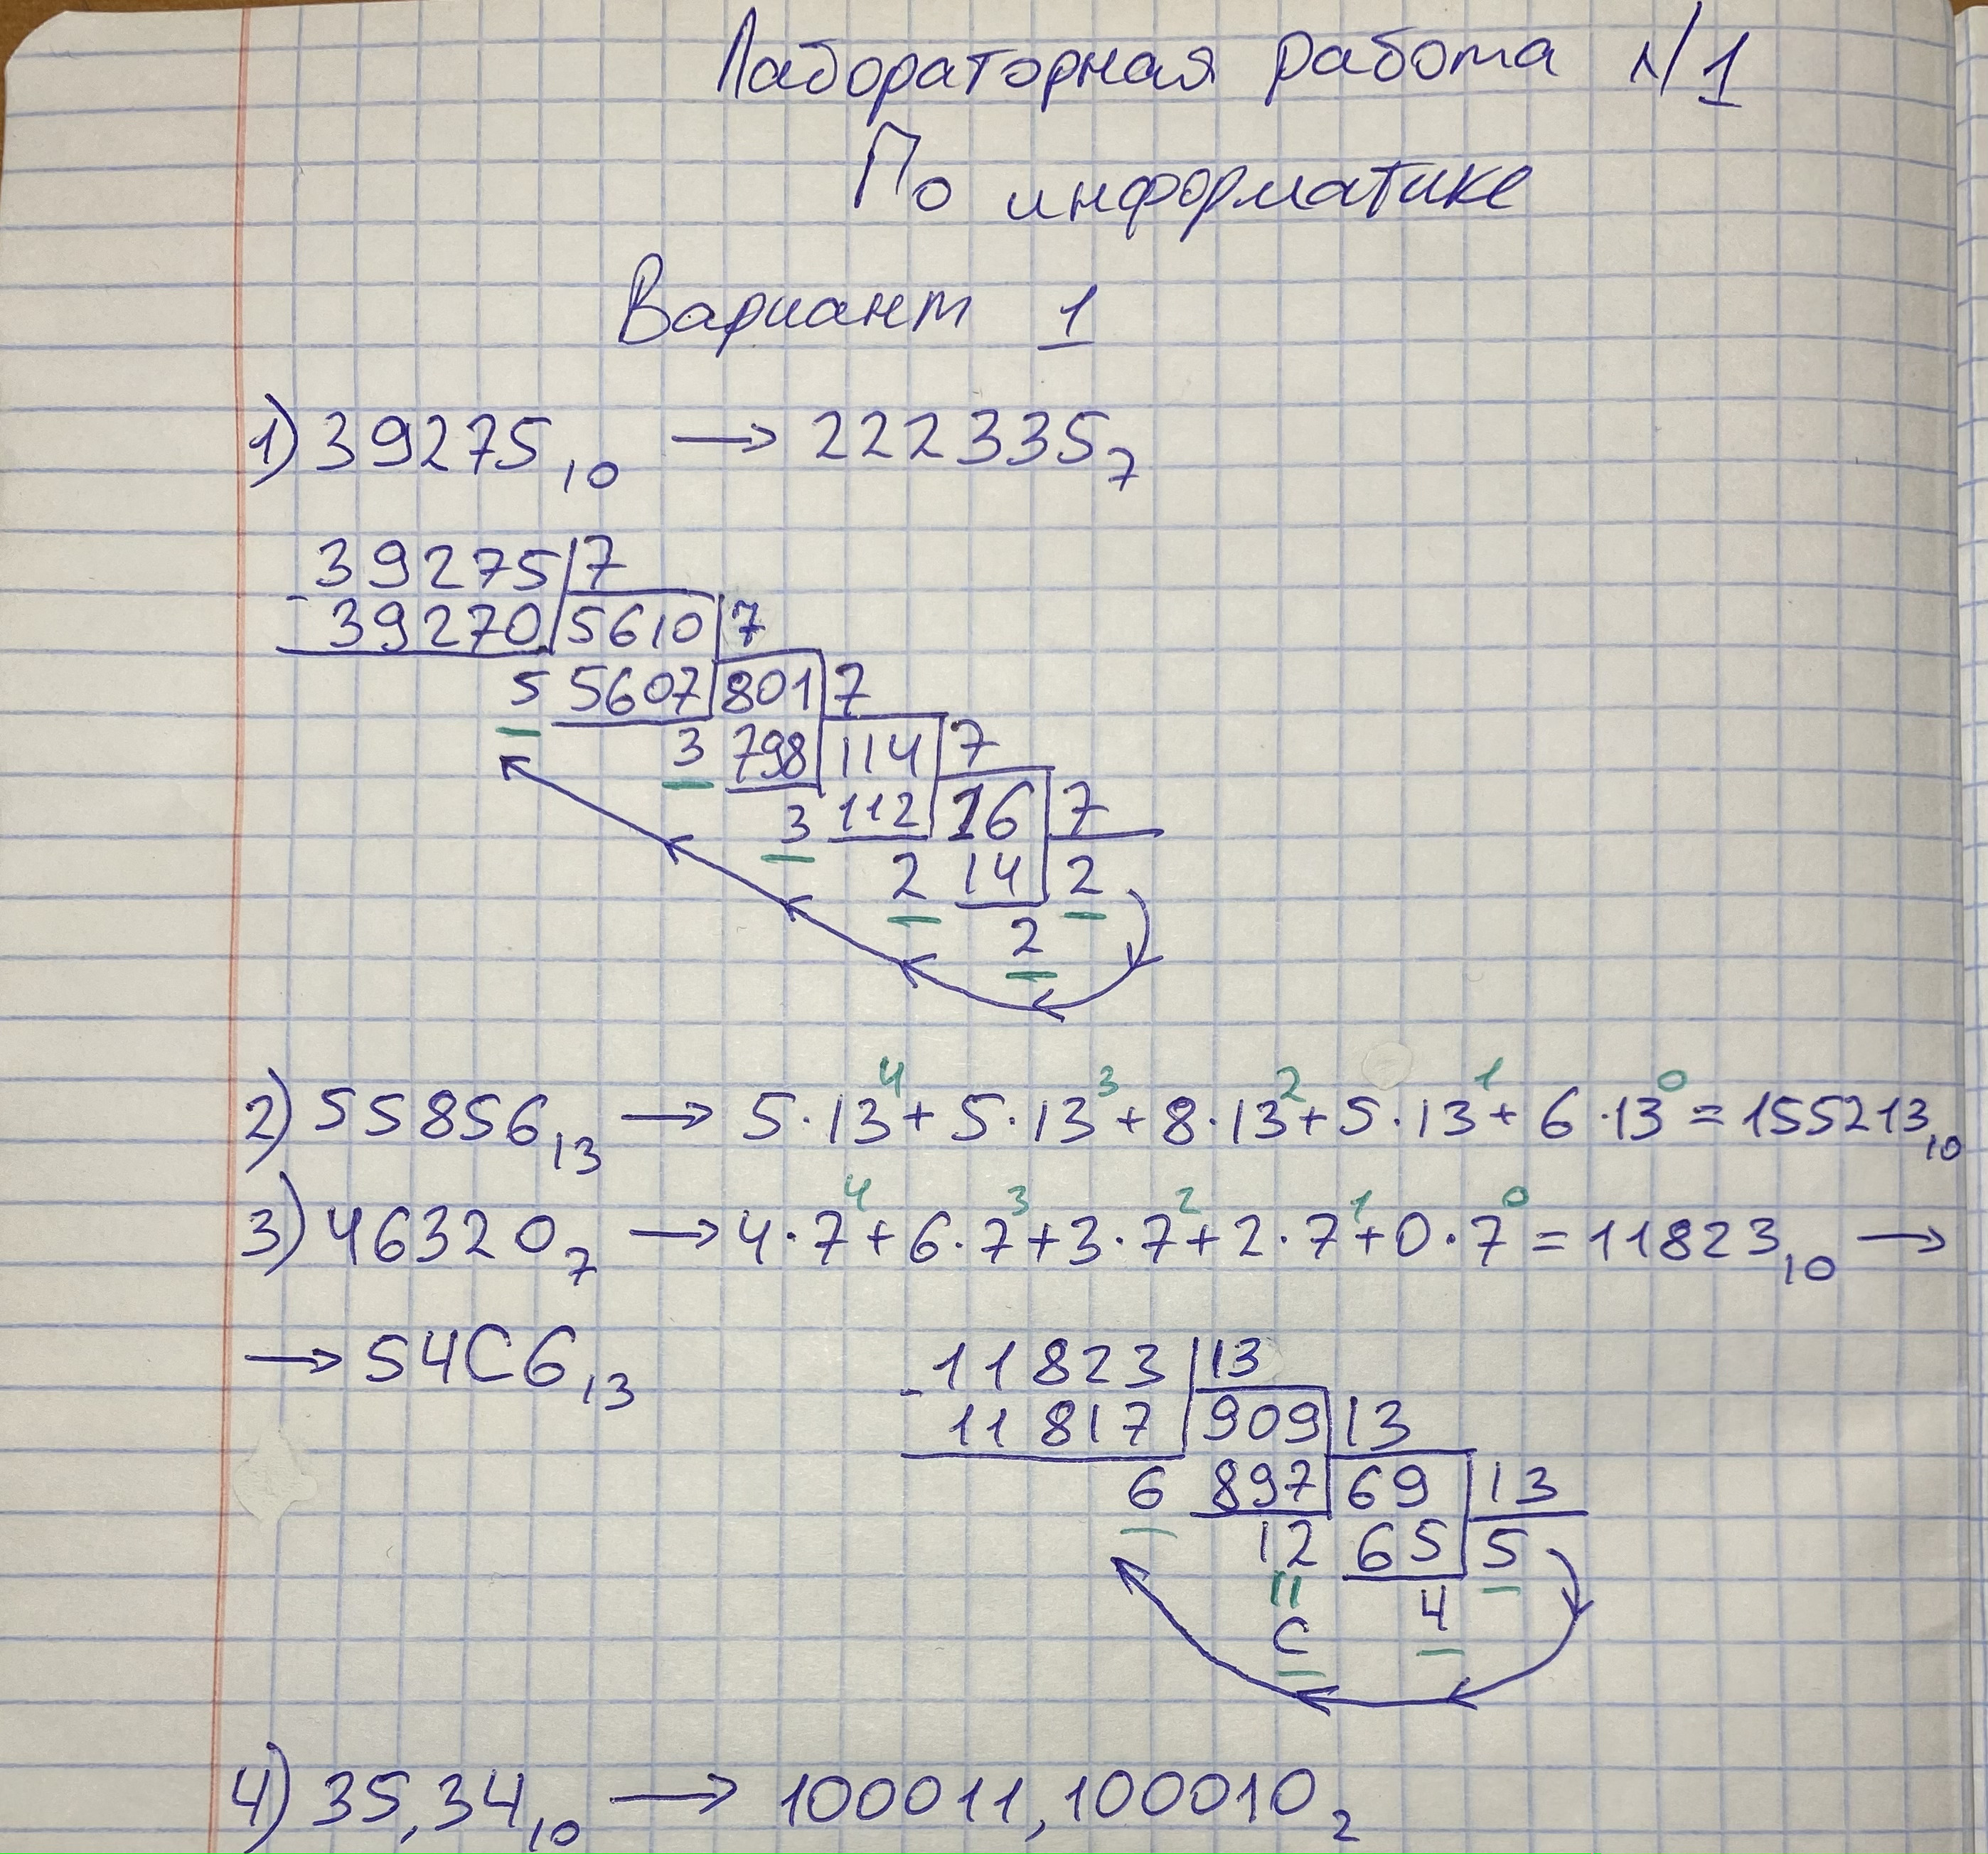 Лабораторная работа №1
По информатике
Вариант 1
1) 39275₁₀ → 222335₇
39275 | 7
- 39270 | 5610 | 7
5 5607 | 801 | 7
3 798 | 114 | 7
3 112 | 16 | 7
2 14 | 2
2
2) 55856₁₃ → 5·13⁴ + 5·13³ + 8·13² + 5·13¹ + 6·13⁰ = 155213₁₀
3) 46320₇ → 4·7⁴ + 6·7³ + 3·7² + 2·7¹ + 0·7⁰ = 11823₁₀ →
→ 54C6₁₃
- 11823 | 13
11817 | 909 | 13
6 897 | 69 | 13
12 65 | 5
4
C
4) 35,34₁₀ → 100011,100010₂